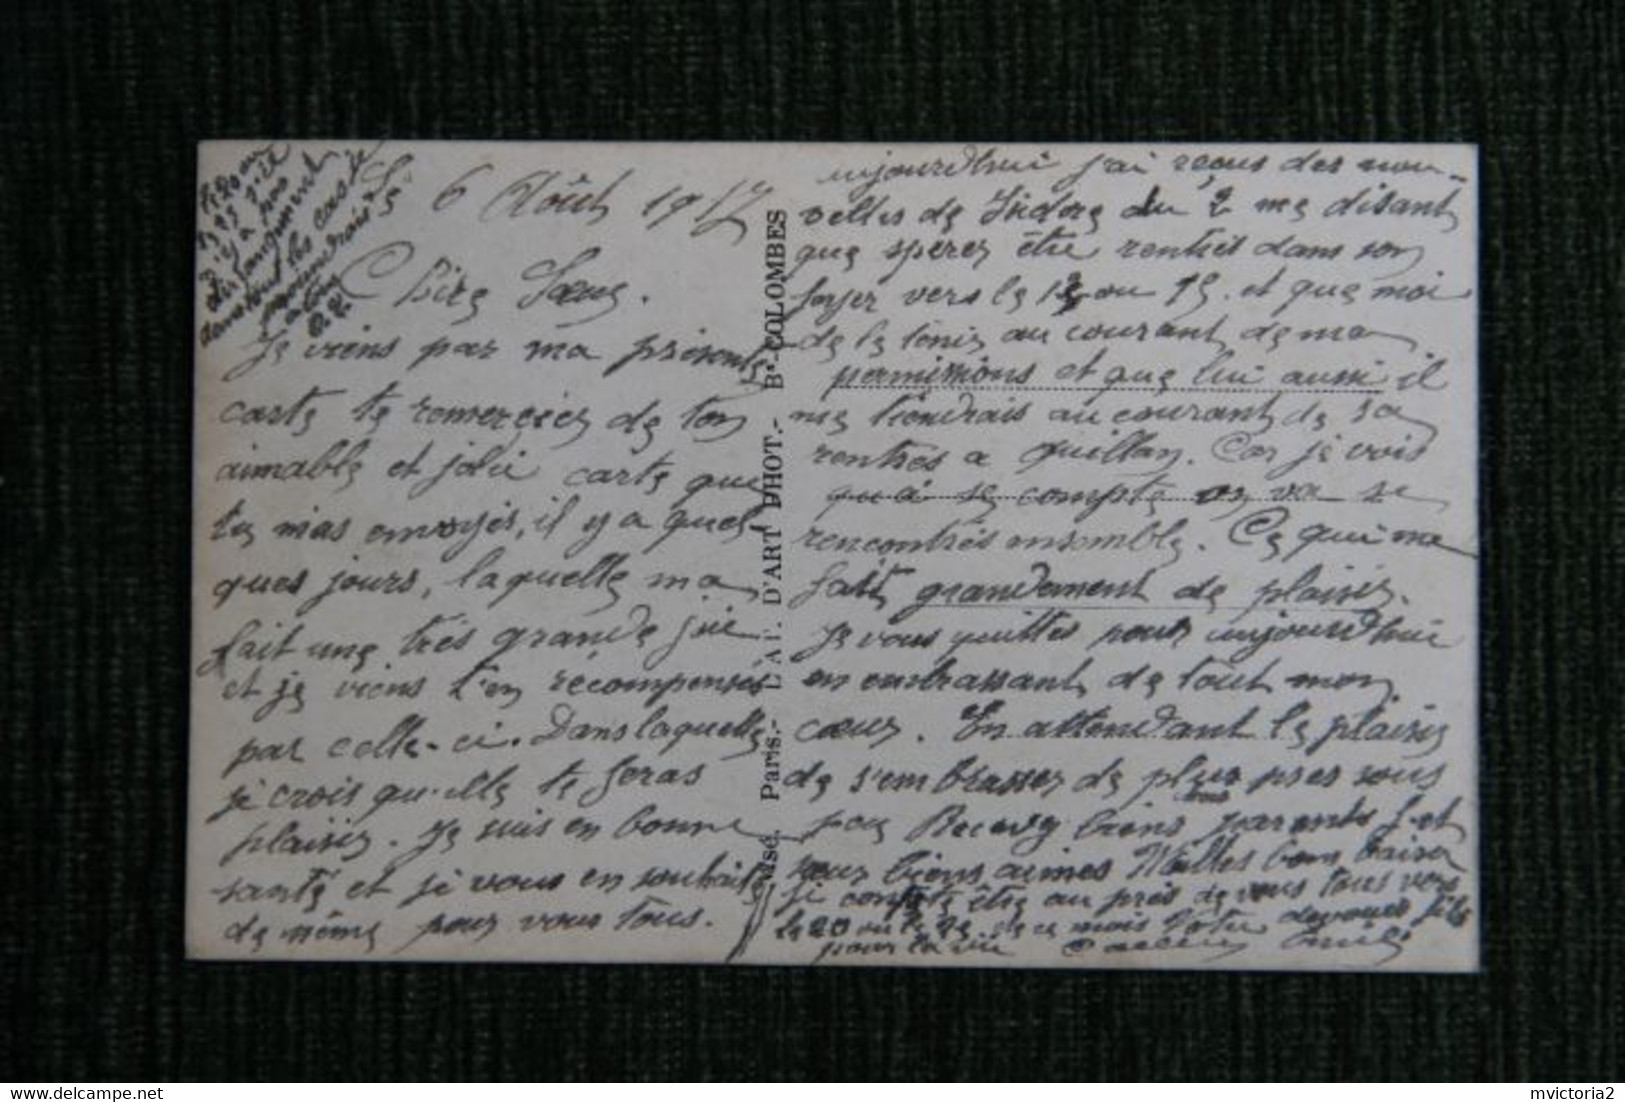 Le 6 Août 1917
Chère Sœur.
Je viens par ma présente
carte te remerciez de ton
aimable et jolie carte que
tu mas envoyés, il y a quel
ques jours, laquelle ma
fait une très grande joie
et je viens t'en récompensés
par celle-ci. Dans laquelle
je crois qu'elle te feras
plaisir. Je suis en bonne
santé et je vous en souhaite
de même pour vous tous.
le 20 ou
le 25 s'il
n'y a pas
dérangement
dans tout les cas je
2.
Visé. Paris.- D'ART PHOT.- Bs-COLOMBES
aujourdhui j'ai reçus des nou-
velles de Isidore du 2 me disant
que sperez être rentrés dans son
foyer vers le 12 ou 15. et que moi
de le tenir au courant de ma
permissions et que lui aussi il
me tiendrais au courant de sa
rentrés a Quillan. Car je vois
qu'a se compte on va se
rencontrés ensemble. Ce qui me
fait grandement de plaisir.
Je vous quittes pour aujourdhui
en embrassant de tout mon
cœur. En attendant le plaisir
de s'embrasser de plus pres vous
tous
Recevez biens parents et
sœur biens aimés Milles bons baiser
je compte être au près de vous tous vers
le 20 ou le 25 de ce mois Votre devoués fils
pour la vie
mvictoria2